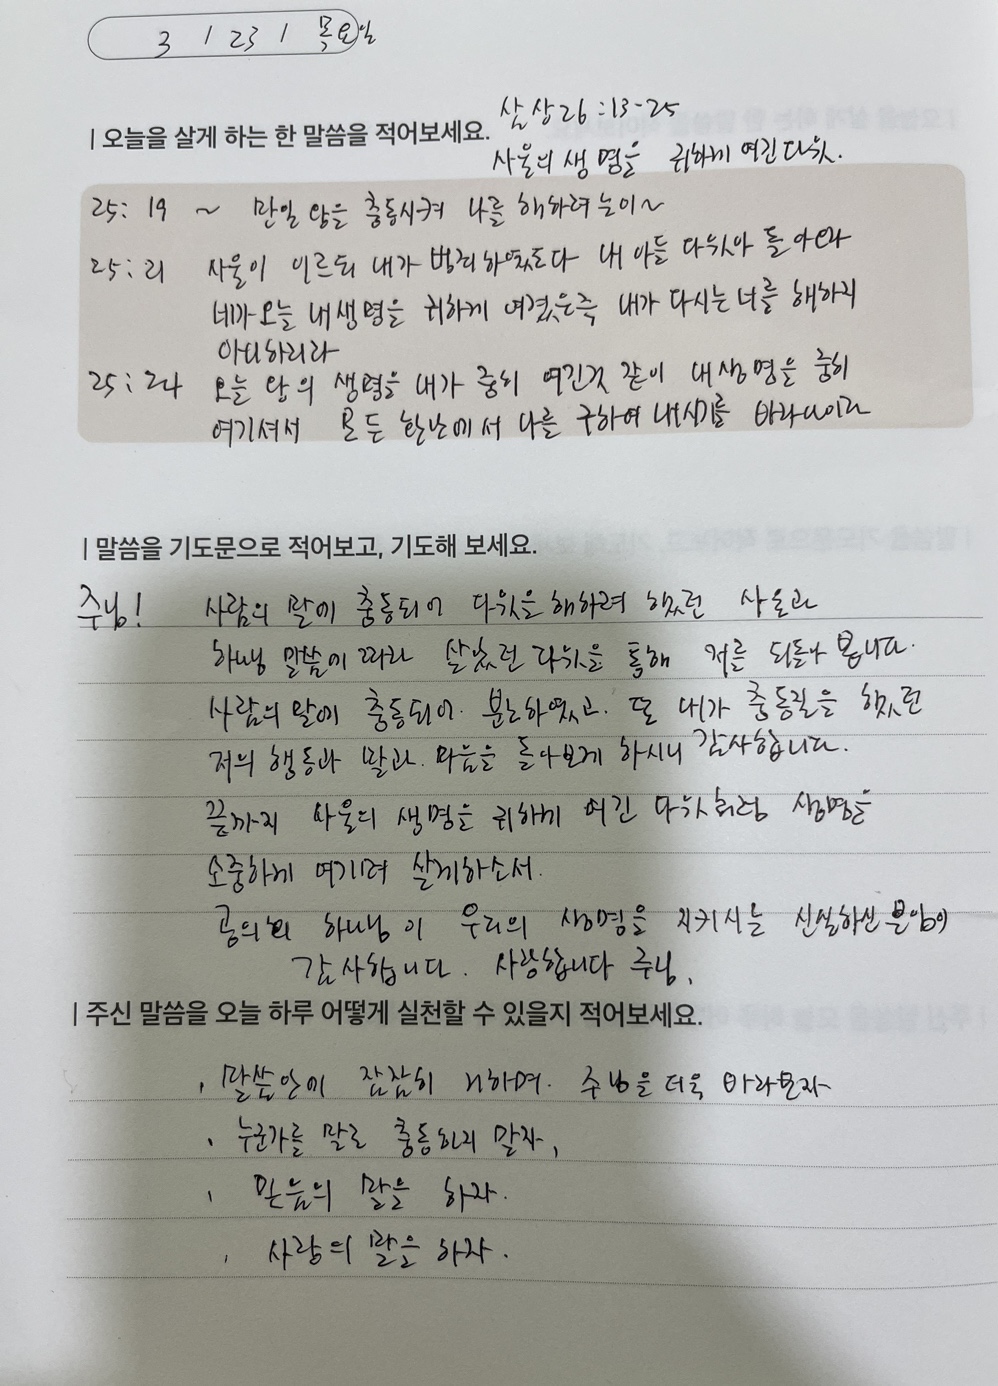 3 / 23 / 목요일
삼상26:13-25
| 오늘을 살게 하는 한 말씀을 적어보세요.
사울의 생명을 귀하게 여긴 다윗.
25: 19 ~ 만일 왕을 충동시켜 나를 해하려는이~
25: 21 사울이 이르되 내가 범죄하였도다 내 아들 다윗아 돌아오라
네가 오늘 내 생명을 귀하게 여겼은즉 내가 다시는 너를 해하지
아니하리라
25: 24 오늘 왕의 생명을 내가 중히 여긴것 같이 내 생명을 중히
여기셔서 모든 환난에서 나를 구하여 내시기를 바라나이다
| 말씀을 기도문으로 적어보고, 기도해 보세요.
주님! 사람의 말에 충동되어 다윗을 해하려 했던 사울과
하나님 말씀에 따라 살았던 다윗을 통해 저를 되돌아 봅니다.
사람의 말에 충동되어 분노하였고. 또 내가 충동질을 했던
저의 행동과 말과 마음을 돌아보게 하시니 감사합니다.
끝까지 사울의 생명을 귀하게 여긴 다윗처럼 생명을
소중하게 여기며 살게하소서.
공의의 하나님이 우리의 생명을 지키시는 신실하신
감사합니다. 사랑합니다 주님.
| 주신 말씀을 오늘 하루 어떻게 실천할 수 있을지 적어보세요.
. 말씀안에 잠잠히 거하며. 주님을 더욱 바라보자
. 누군가를 말로 충동하지 말자.
. 믿음의 말을 하자.
. 사랑의 말을 하자.